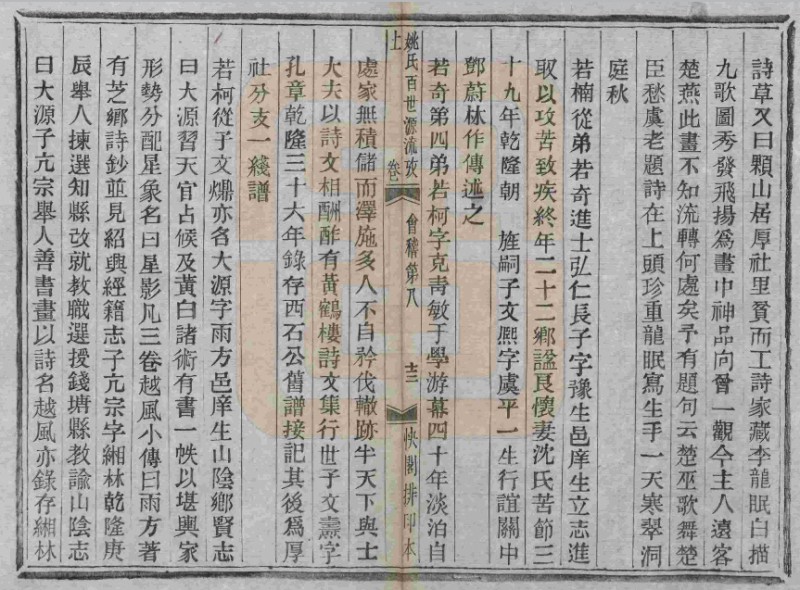 詩草又曰顆山居厚社里貧而工詩家藏李龍眠白描
九歌圖秀發飛揚爲畫中神品向曾一觀今主人遠客
楚燕此畫不知流轉何處矣予有題句云楚巫歌舞楚
臣愁虞老題詩在上頭珍重龍眠寫生手一天寒翠洞
庭秋
若楠從弟若奇進士弘仁長子字豫生邑庠生立志進
取以攻苦致疾終年二十二鄉諡良懷妻沈氏苦節三
十九年乾隆朝 旌嗣子文熙字虞平一生行誼關中
鄧蔚林作傳述之
若奇第四弟若柯字克靑敏于學游幕四十年淡泊自
姚氏百世源流攷 卷上 會稽第八 十三 快閣排印本
處家無積儲而澤施多人不自矜伐轍跡半天下與士
大夫以詩文相酬酢有黃鶴樓詩文集行世子文燾字
孔章乾隆三十六年錄存西石公舊譜接記其後爲厚
社分支一綫譜
若柯從子文㶊亦名大源字雨方邑庠生山陰鄉賢志
曰大源習天官占候及黃白諸術有書一帙以堪輿家
形勢分配星象名曰星影凡三卷越風小傳曰雨方著
有芝鄉詩鈔並見紹興經籍志子亢宗字緗林乾隆庚
辰舉人揀選知縣改就教職選授錢塘縣教諭山陰志
曰大源子亢宗舉人善書畫以詩名越風亦錄存緗林